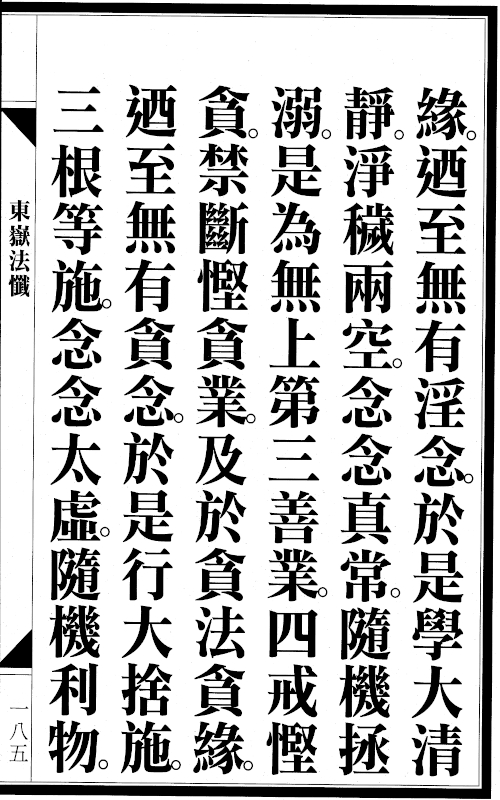 緣。迺至無有淫念。於是學大清
靜。淨穢兩空。念念真常。隨機拯
溺。是為無上第三善業。四戒慳
貪。禁斷慳貪業。及於貪法貪緣。
迺至無有貪念。於是行大捨施。
三根等施。念念太虛。隨機利物。
東嶽法懺
一八五